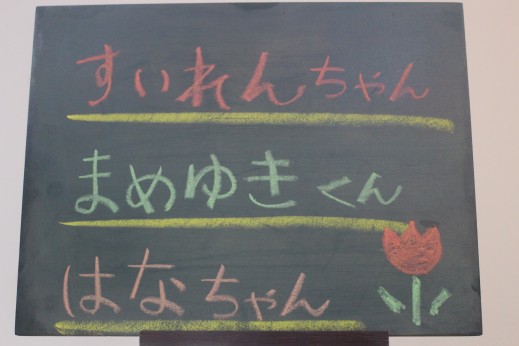 すいれんちゃん
まめゆきくん
はなちゃん